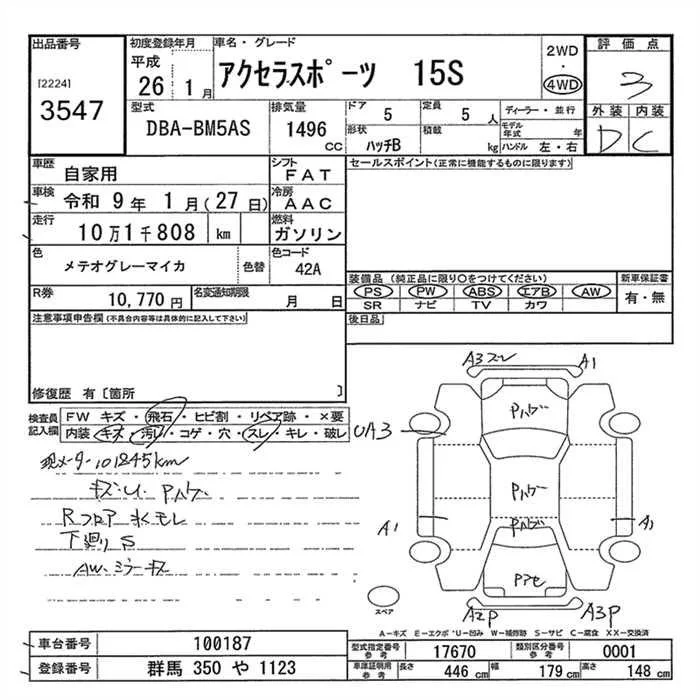 出品番号 初度登録年月 車名・グレード 2WD・4WD 評価点
[2224] 3547 平成 26 1月 アクセラスポーツ 15S 3
型式 DBA-BM5AS 排気量 1496 CC ドア 5 定員 5 人 ディーラー・並行 外装 内装
形状 ハッチB 積載 kg モデル年式 年 ハンドル 左・右 D C
車歴 自家用 シフト FAT セールスポイント(正常に機能するものに限ります)
車検 令和 9 年 1 月(27 日) 冷房 AAC
走行 10万1千808 km 燃料 ガソリン
色 メテオグレーマイカ 色替 色コード 42A
装備品 (純正品に限り○をつけてください) 新車保証書
PS PW ABS エアB AW 有・無
SR ナビ TV カワ
R券 10,770円 名変通知期限 月 日
注意事項申告欄(不具合内容等は具体的に記入して下さい) 後日品
修復歴 有〔箇所 〕
検査員記入欄 FW キズ・飛石・ヒビ割・リペア跡・×要
内装・キズ・汚レ・コゲ・穴・スレ・キレ・破レ
現メーター101845km
キズ・U. Pハゲ
Rフロア 水モレ
下廻り S
AW・ミラーキズ
A3 ズレ A1
UA3 Pハゲ
Pハゲ
Pハゲ
A1 A1
Pアセ
スペア A2P A3P
A-キズ E-エクボ U-凹み W-補修跡 S-サビ C-腐食 XX-交換済
車台番号 100187 型式指定番号 参考 17670 類別区分番号 参考 0001
登録番号 群馬 350 や 1123 車庫証明用 参考 長さ 446 cm 幅 179 cm 高さ 148 cm